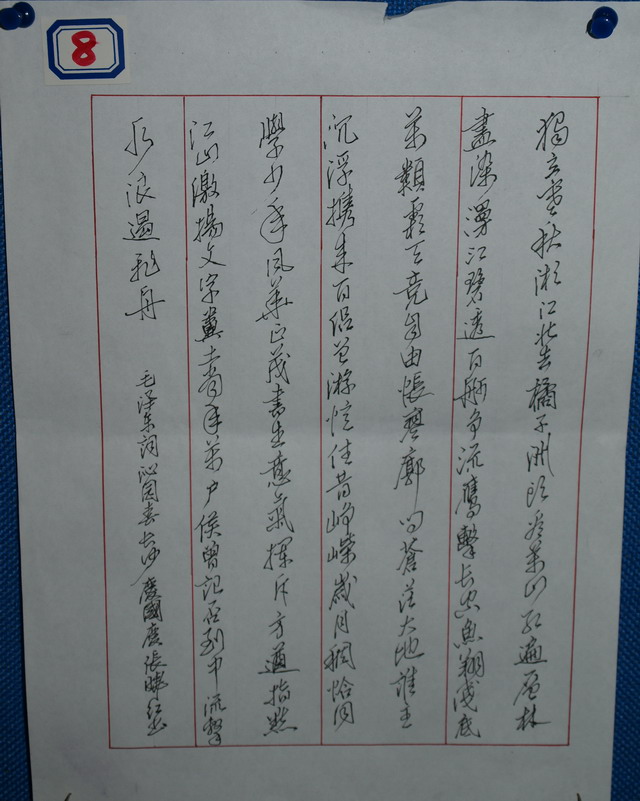 8
獨立寒秋湘江北去橘子洲頭看萬山红遍層林
盡染漫江碧透百舸争流鷹擊长空魚翔淺底
萬類霜天竞自由悵寥廓问蒼茫大地誰主
沉浮携来百侣曾游憶往昔峥嶸歲月稠恰同
學少年风華正茂書生意氣揮斥方遒指點
江山激揚文字糞土當年萬户侯曾記否到中流擊
水浪遏飛舟 毛泽东词沁园春长沙 慶國慶張